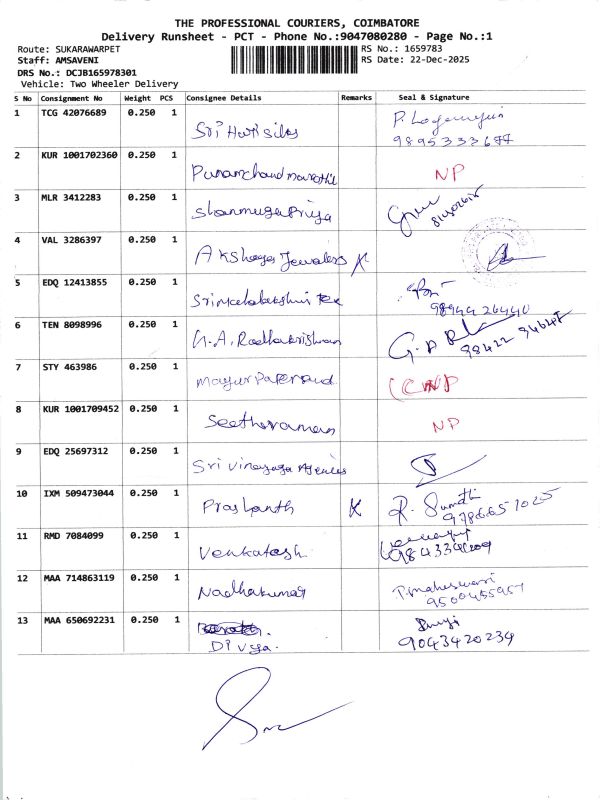 THE PROFESSIONAL COURIERS, COIMBATORE
Delivery Runsheet - PCT - Phone No.:9047080280 - Page No.:1
Route: SUKARAWARPET
RS No.: 1659783
Staff: AMSAVENI
RS Date: 22-Dec-2025
DRS No.: DCJB165978301
Vehicle: Two Wheeler Delivery
S No Consignment No Weight PCS Consignee Details Remarks Seal & Signature
1 TCG 42076689 0.250 1 Sri Hari silks
2 KUR 1001702360 0.250 1 NP
3 MLR 3412283 0.250 1 Shanmuga Priya
4 VAL 3286397 0.250 1 Akshaya Jewelers
5 EDQ 12413855 0.250 1 98944 26440
6 TEN 8098996 0.250 1 Radhakrishnan
7 STY 463986 0.250 1
8 KUR 1001709452 0.250 1 Seetharaman NP
9 EDQ 25697312 0.250 1 Sri Vinayaga Agencies
10 IXM 509473044 0.250 1 Prashanth K R. Sumathi
11 RMD 7084099 0.250 1 Venkatesh
12 MAA 714863119 0.250 1 P. maheswari
9500455957
13 MAA 650692231 0.250 1
Divya. 9043420234